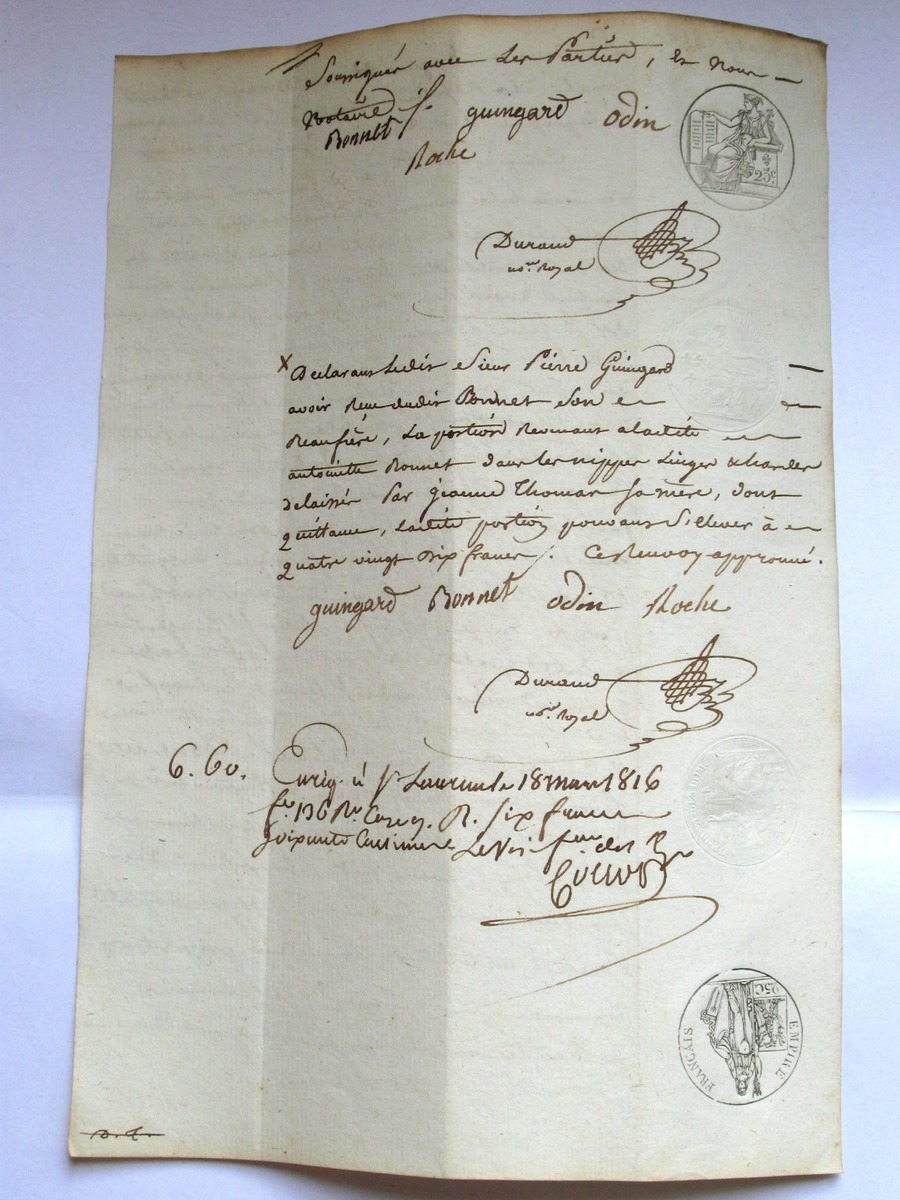 Soussignés avec Les Parties, Et Nous
Notaire
Bonnet guingard odin
Roche
25c.
Durand
no.re Royal
X Declarant Ledit Sieur Pierre Guingard
avoir Recu dudit Bonnet Son
Beaufrère, La portion Revenant a ladite
antoinette Bonnet dans les nippes Linges & hardes
delaissés Par jeanne Thomas Sa mère, dont
quittance, Ladite portion pouvant S'Elever à
quatre vingt dix francs. Ce Renvoy approuvé.
guingard Bonnet odin Roche
Durand
no.re Royal
6. 60. Enreg. à St Laurent le 18 mars 1816
fo. 136 Ro. Case 9. R. Six francs
Soixante Centimes
25C
EMPIRE FRANÇAIS